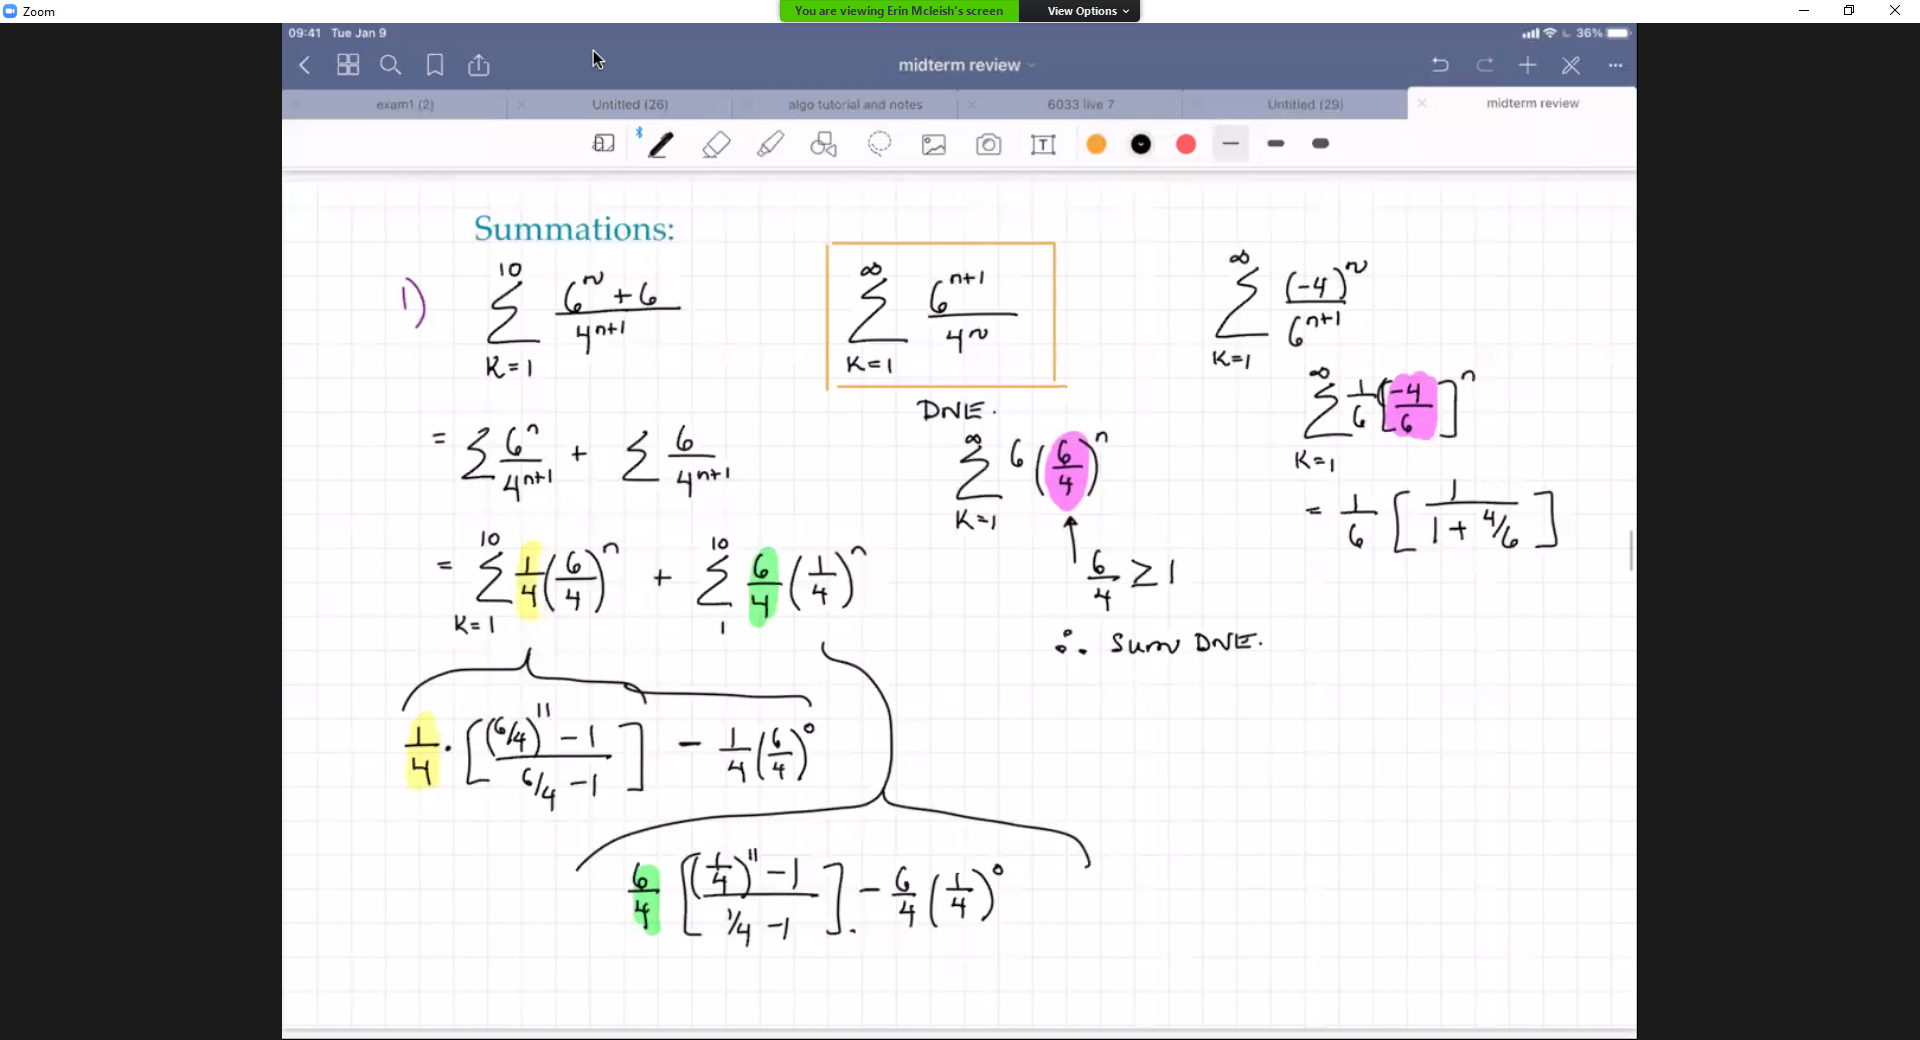 Zoom
You are viewing Erin Mcleish's screen
View Options
09:41 Tue Jan 9
36%
midterm review
exam1 (2)
Untitled (26)
algo tutorial and notes
6033 live 7
Untitled (29)
midterm review
T
Summations:
1) ∑_{K=1}^{10} (6^n + 6)/4^{n+1}
= ∑ 6^n/4^{n+1} + ∑ 6/4^{n+1}
= ∑_{K=1}^{10} 1/4 (6/4)^n + ∑_{1}^{10} 6/4 (1/4)^n
1/4 · [((6/4)^{11} - 1)/(6/4 - 1)] - 1/4 (6/4)^0
6/4 [((1/4)^{11} - 1)/(1/4 - 1)]. - 6/4 (1/4)^0
∑_{K=1}^{∞} 6^{n+1}/4^n
DNE.
∑_{K=1}^{∞} 6 (6/4)^n
6/4 ≥ 1
∴ Sum DNE.
∑_{K=1}^{∞} (-4)^n/6^{n+1}
∑_{K=1}^{∞} 1/6 [-4/6]^n
= 1/6 [1/(1 + 4/6)]